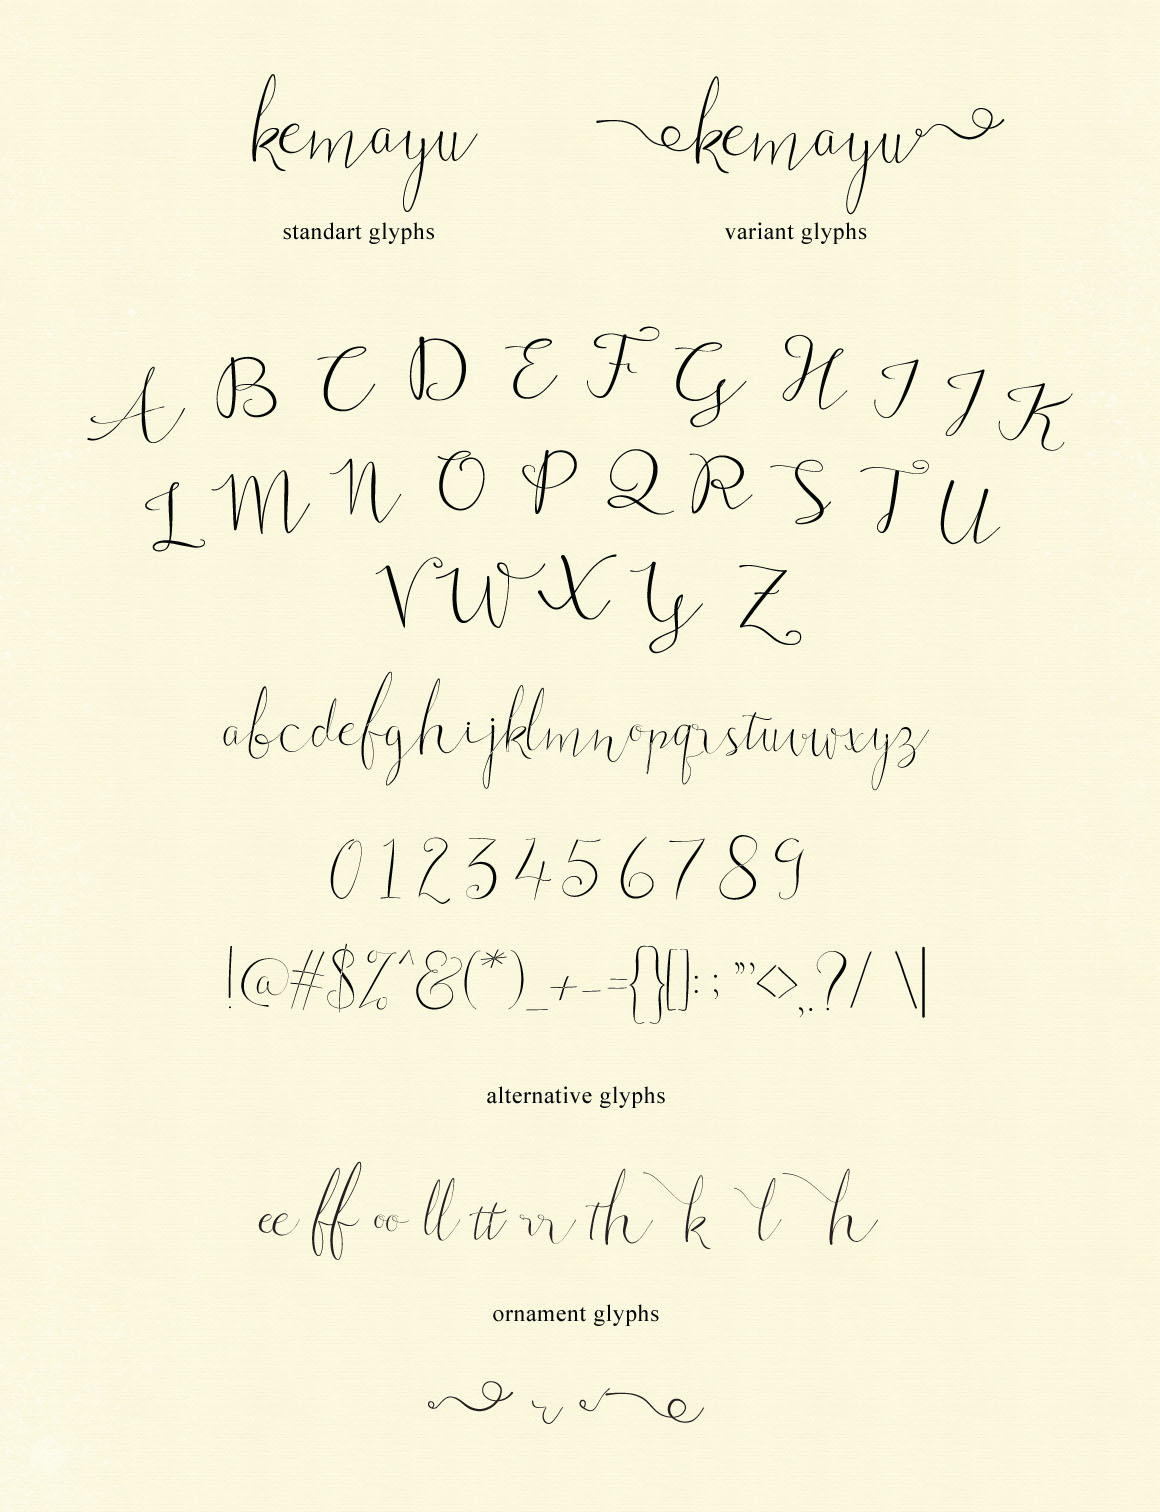 kemayu kemayu
standart glyphs variant glyphs
A B C D E F G H I J K
L M N O P Q R S T U
V W X Y Z
abcdefghijklmnopqrstuvwxyz
0123456789
!@#$%^&(*)_+-={}[]:;"'<>,.?/ \|
alternative glyphs
ee ff oo ll tt rr th k l h
ornament glyphs